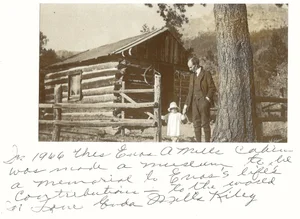 In 1966 this Enos A Mills Cabin
was made a museum to be
a memorial to Enos's life's
contributions — to the world
Enda Mills Kiley